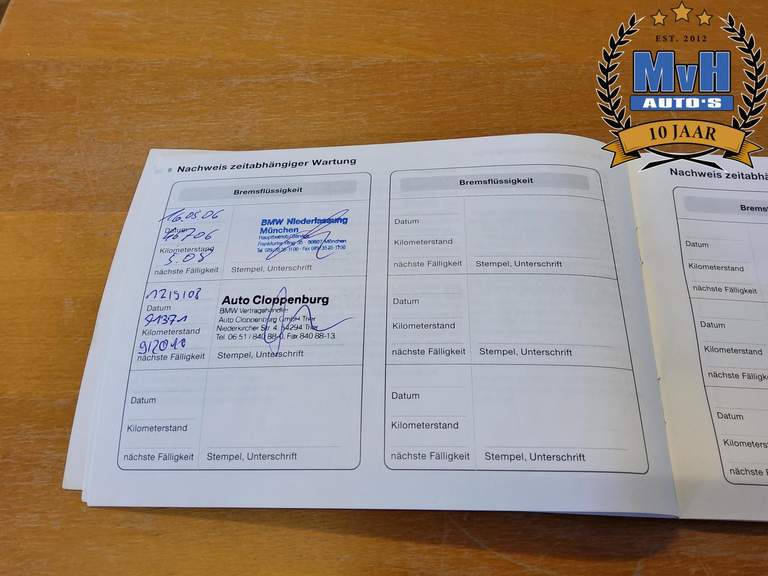 EST. 2012
MvH
AUTO'S
10 JAAR
Nachweis zeitabhängiger Wartung
Bremsflüssigkeit
16.05.06
Datum
Kilometerstand
5.08
nächste Fälligkeit
BMW Niederlassung
München
Stempel, Unterschrift
Datum
71371
Kilometerstand
9/2010
nächste Fälligkeit
Auto Cloppenburg
BMW Vertragshändler
Auto Cloppenburg GmbH Trier
Niederkircher Str. 4, 54294 Trier
Tel. 06 51 / 840 88-0, Fax 840 88-13
Stempel, Unterschrift
Datum
Kilometerstand
nächste Fälligkeit
Stempel, Unterschrift
Bremsflüssigkeit
Datum
Kilometerstand
nächste Fälligkeit
Stempel, Unterschrift
Datum
Kilometerstand
nächste Fälligkeit
Stempel, Unterschrift
Datum
Kilometerstand
nächste Fälligkeit
Stempel, Unterschrift
Nachweis zeitabhä
Bremsf
Datum
Kilometerstand
nächste Fälligkeit
Datum
Kilometerstand
nächste Fälligk
Datum
Kilometers
nächste Fäl